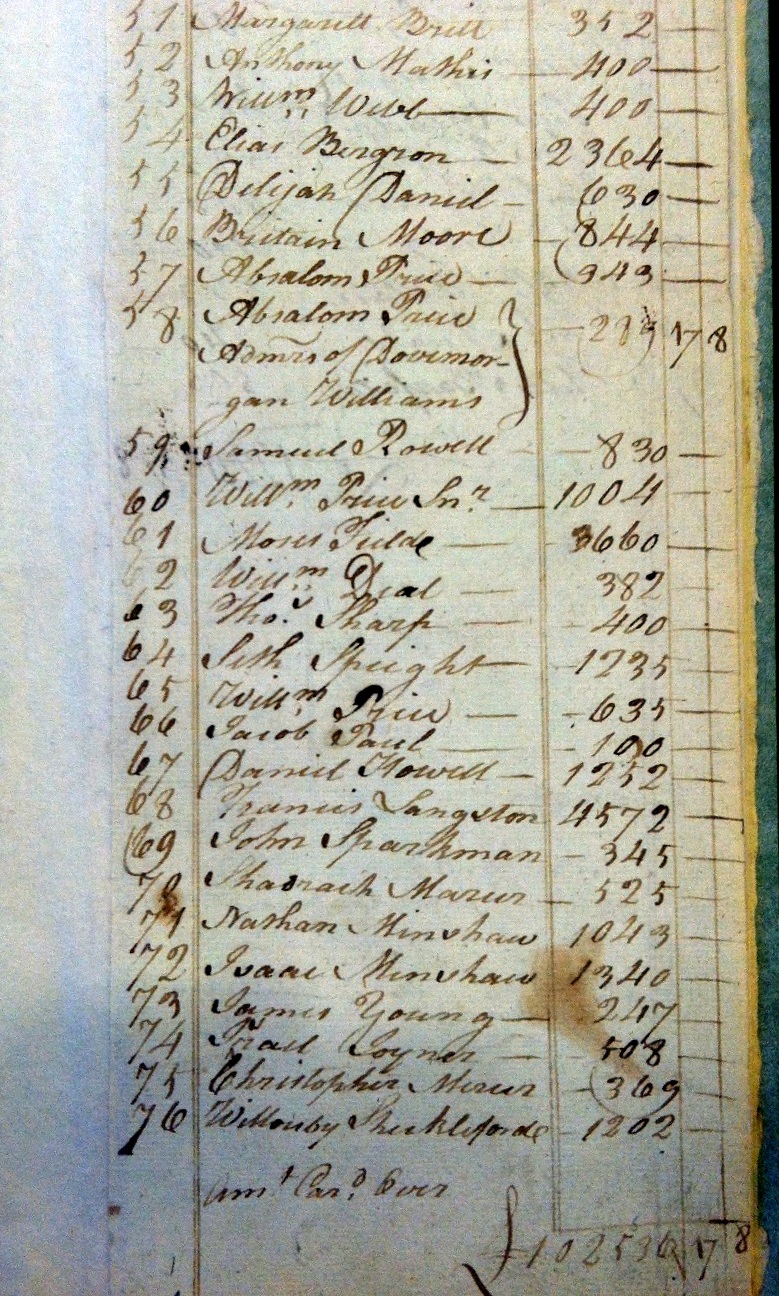 51 Margarett Britt 352 —
52 Anthony Mathis — 400 —
53 Willm Webb — 400 —
54 Elias Bergron — 2364 —
55 Delijah Daniel — 630 —
56 Britain Moore — 844 —
57 Absalom Price — 343 —
58 Absalom Price — 17 8
Admrs of Dovemor-
gan Williams
59 Samuel Rowell — 830 —
60 Willm Price Snr. — 1004 —
61 Moses Fields — 3660 —
62 Willm Deal — 382 —
63 Thos. Sharp — 400 —
64 Seth Speight — 1235 —
65 Willm Price — 635 —
66 Jacob Paul — 100 —
67 Daniel Howell — 1252 —
68 Francis Langston 4572 —
69 John Sparkman — 345 —
70 Shadrach Mercer — 525 —
71 Nathan Minshaw 1043 —
72 Isaac Minshaw 1340 —
73 James Young — 247 —
74 Israel Joyner — 508 —
75 Christopher Mercer — 369 —
76 Willouby Shickleforde — 1202 —
Amt Card. Over
£102536 17 8